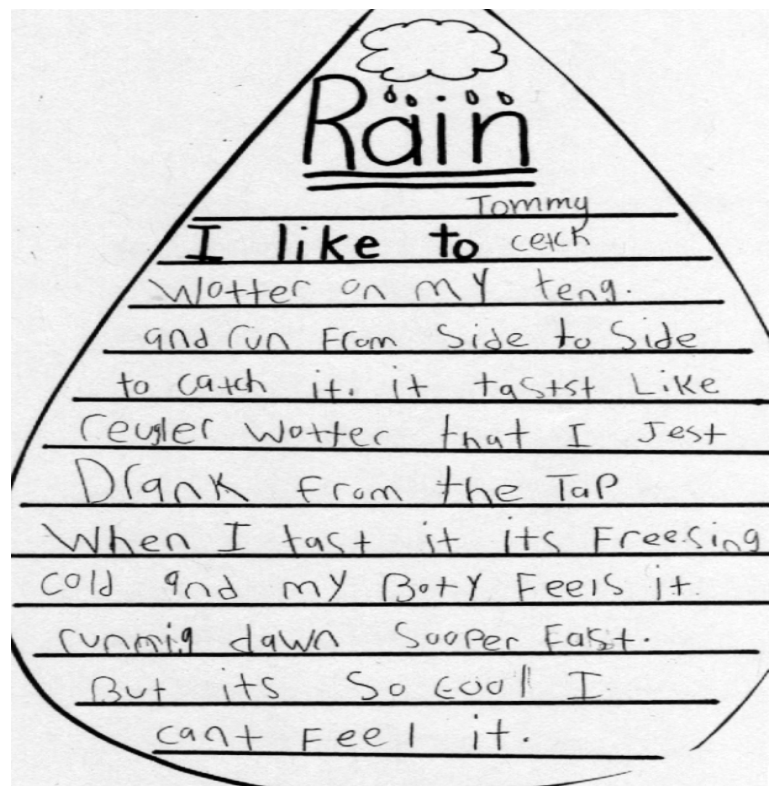 Rain
Tommy
I like to cetch
Wotter on my teng.
and run From Side to Side
to catch it. it tastst Like
reugler Wotter that I Jest
Drank from the TaP
When I tast it its Freesing
cold and my BotY Feels it
runmig dawn SooPer Fast.
But its So cool I
cant Feel it.